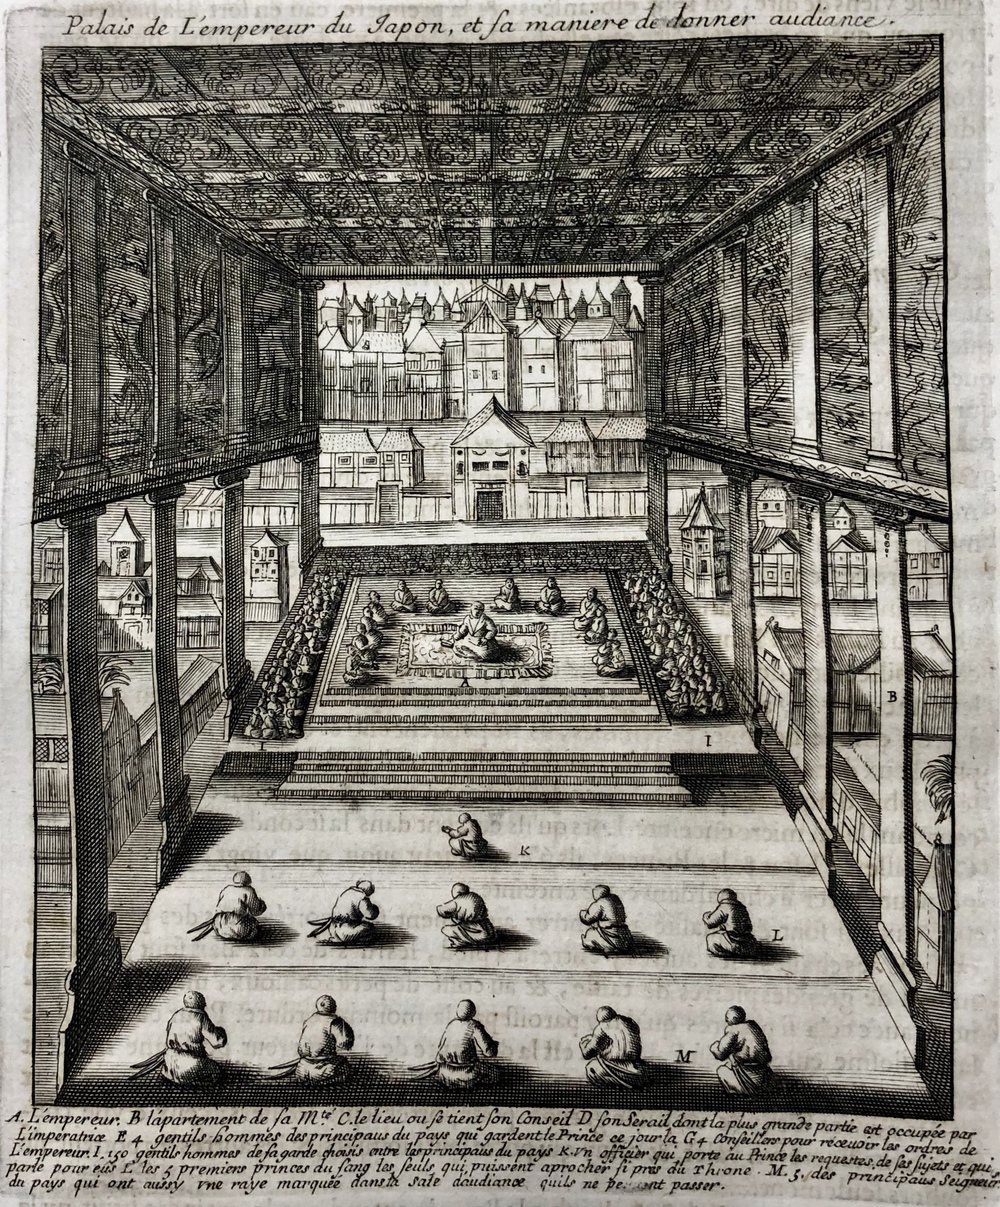 Palais de L'empereur du Japon, et sa maniere de donner audiance.
B
A
I
I
K
L
M
A. L'empereur. B lápartement de sa M.té C. le lieu ou se tient son Conseil D son Serail dont la plus grande partie est occupée par
L'imperatrice E 4 gentils hommes des principaus du pays qui gardent le Prince ce jour la G 4 Conseillers pour recevoir les ordres de
L'empereur. I. 150 gentils hommes de sa garde choisis entre les principaus du pays K. vn officier qui porte au Prince les requestes, de ses sujets et qui
parle pour eus L les 5 premiers princes du sang les seuls qui puissent aprocher si pres du throne. M. 5. des principaus Seigneur
du pays qui ont aussy vne raye marquée dans la sale daudiance quils ne passer.